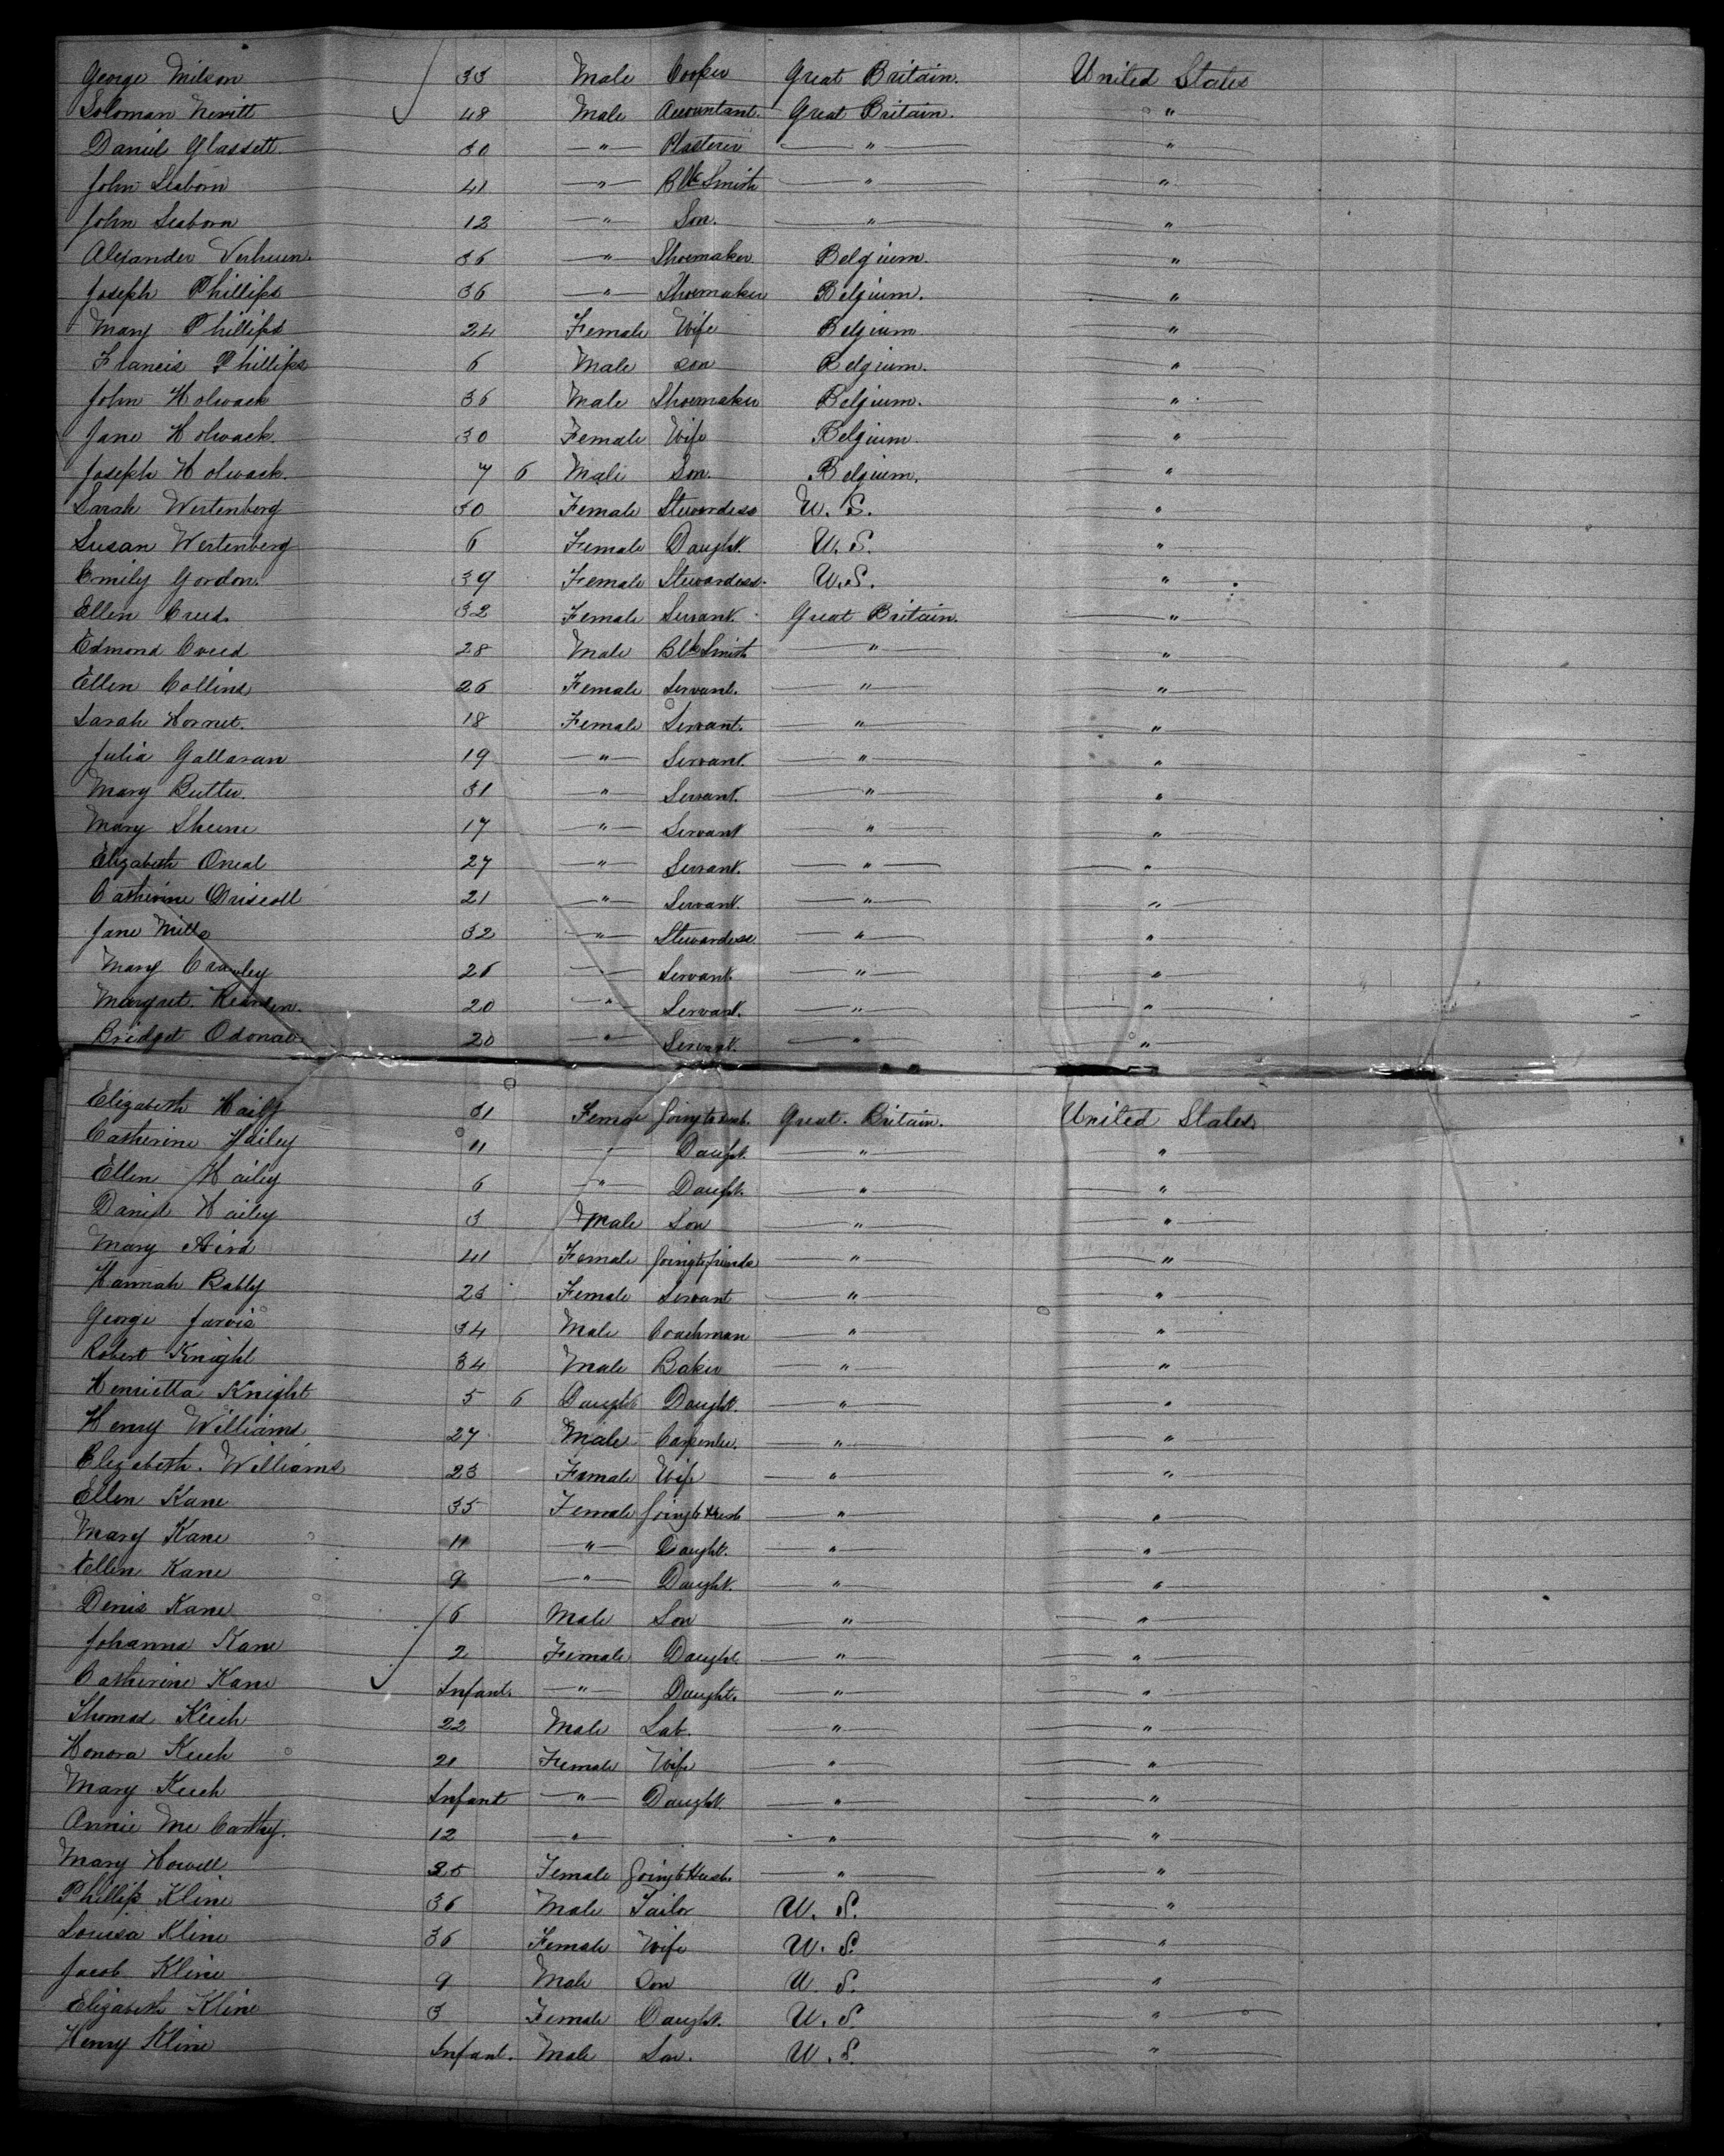 George Milson 33 Male Cooper Great Britain. United States
Soloman Nevitt 48 Male Accountant. Great Britain. "
Daniel Glassett. 30 " Plasterer " "
John Seaborn 41 " Blk Smith " "
John Seaborn 12 " Son. " "
Alexander Verhuen. 36 " Shoemaker Belgium. "
Joseph Phillips 36 " Shoemaker Belgium. "
Mary Phillips 24 Female Wife Belgium "
Francis Phillips 6 Male son Belgium. "
John Holwack 36 Male Shoemaker Belgium. "
Jane Holwack. 30 Female Wife Belgium. "
Joseph Holwack. 7 6 Male Son. Belgium. "
Sarah Wertenberg 30 Female Stewardess U. S. "
Susan Wertenberg 6 Female Daught. U. S. "
Emily Gordon. 39 Female Stewardess. U.S. "
Ellen Creed. 32 Female Servant. Great Britain. "
Edmond Creed 28 Male Blk Smith " "
Ellen Collins 26 Female Servant. " "
Sarah Hornet. 18 Female Servant. " "
Julia Gallavan 19 " Servant. " "
Mary Butler. 31 " Servant. " "
Mary Sheene 17 " Servant " "
Elizabeth Oneal 27 " Servant. " "
Catherine Driscoll 21 " Servant. " "
Jane Mills 32 " Stewardess " "
Mary Crawley 26 " Servant. " "
Margret. Rearden. 20 " Servant. " "
Bridget Odonal 20 " Servant. " "
Elizabeth Haily 31 Female Going to husb. Great. Britain. United States.
Catherine Hailey 11 " Daught. " "
Ellen Hailey 6 " Daught. " "
Daniel Hailey 3 Male Son " "
Mary Aird 41 Female Going to friends " "
Hannah Bably 23 Female Servant " "
George Jarvis 34 Male Coachman " "
Robert Knight 34 Male Baker " "
Henrietta Knight 5 6 Daught Daught. " "
Henry Williams 27 Male Carpenter. " "
Elizabeth. Williams 23 Female Wife " "
Ellen Kane 35 Female Going to Husb " "
Mary Kane 11 " Daught. " "
Ellen Kane 9 " Daught. " "
Denis Kane 6 Male Son " "
Johanna Kane 2 Female Daught. " "
Catherine Kane Infant. " Daught. " "
Thomas Keich 22 Male Lab. " "
Honora Keich 21 Female Wife " "
Mary Keich Infant " Daught. " "
Annie Mc Carthy. 12 " " "
Mary Howell 25 Female Going to Husb. " "
Phillip Kline 36 Male Tailor U. S. "
Louisa Kline 36 Female Wife U. S. "
Jacob Kline 9 Male Son U. S. "
Elizabeth Kline 3 Female Daught. U. S. "
Henry Kline Infant. Male Son. U. S. "